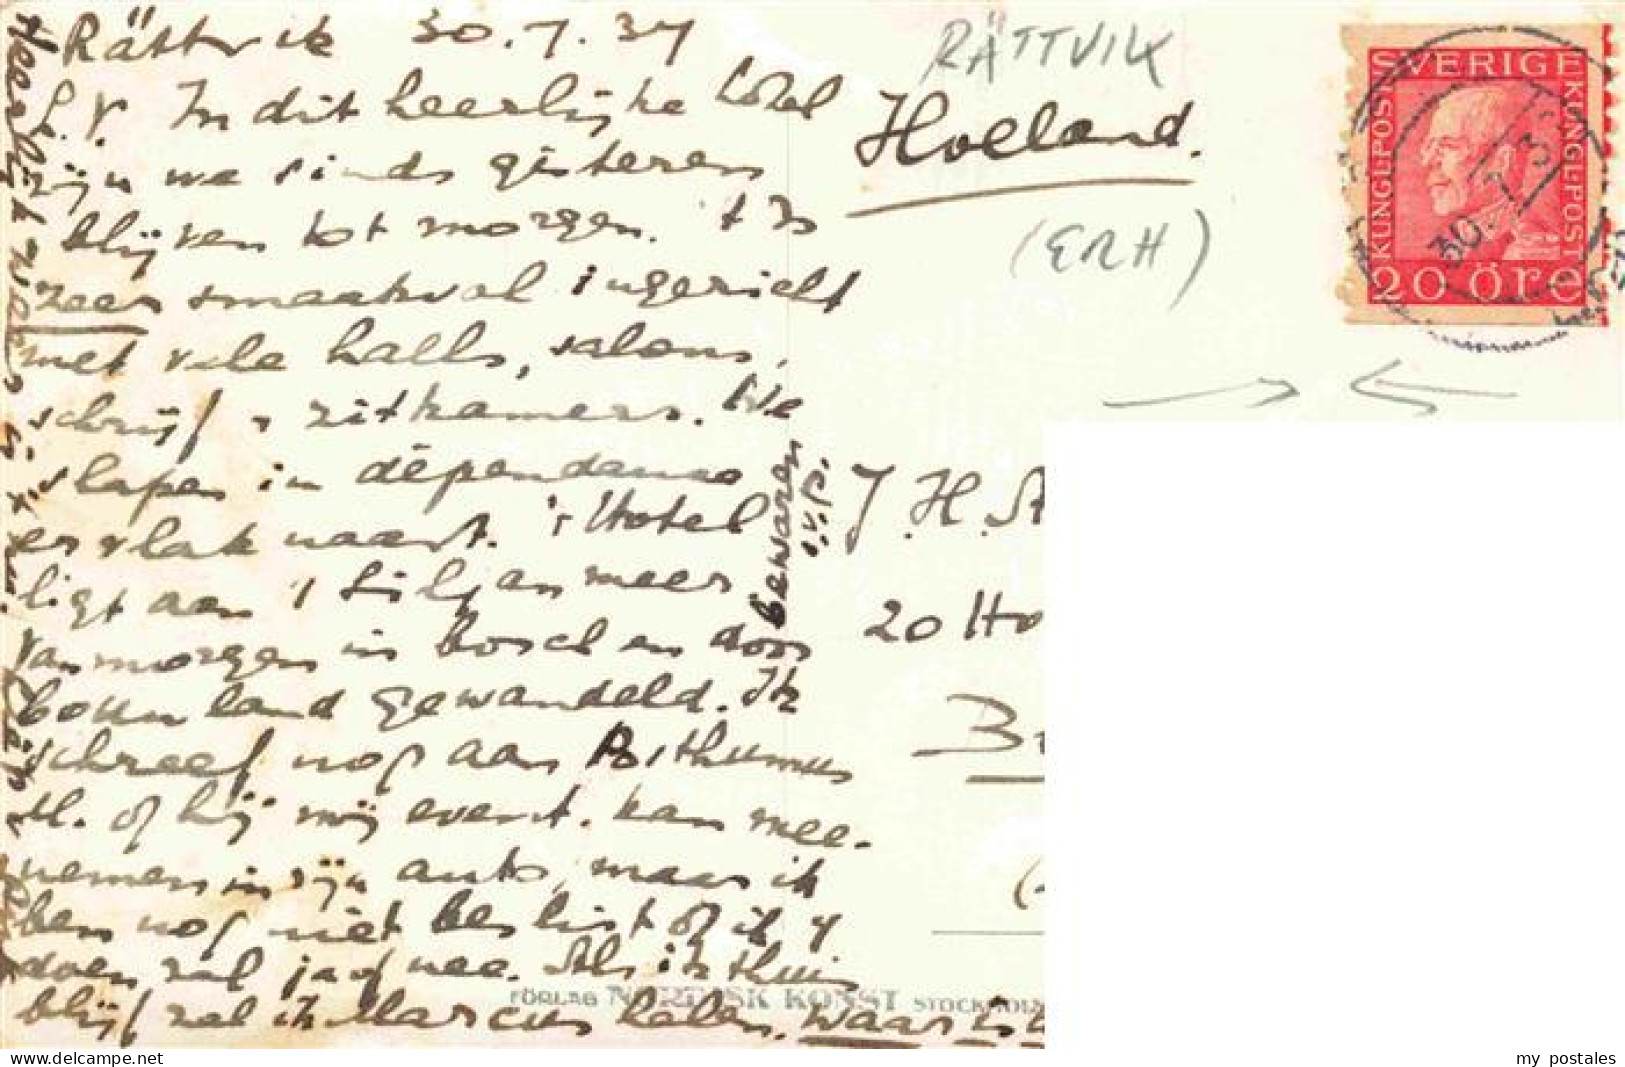 Rättvik 30.7.37
L.V. In dit heerlijke hotel
zijn we sinds gisteren
blijven tot morgen. 't Is
zeer smaakvol ingericht
met vele halls, salons,
schrijf & zitkamers. We
slapen in dépendance
er vlak naast. 't Hotel
ligt aan 't Siljanmeer
Van morgen in bosch en door
bouwland gewandeld. Ik
schreef nog aan Posthumus
M. of hij mij event. kan mee-
nemen in zijn auto, maar ik
ben nog niet beslist of ik 't
doen zal ja of nee. Als ik thuis
blijf zal ik Marcus halen, waar is
bewaren
s.v.p.
RÄTTVIK
Holland.
(ERH)
J. H. St
20 Ho
B
SVERIGE
KUNGL.POST
KUNGL.POST
20 ÖRE
30. 7. 3
FÖRLAG NORDISK KONST STOCKHOLM
my postales